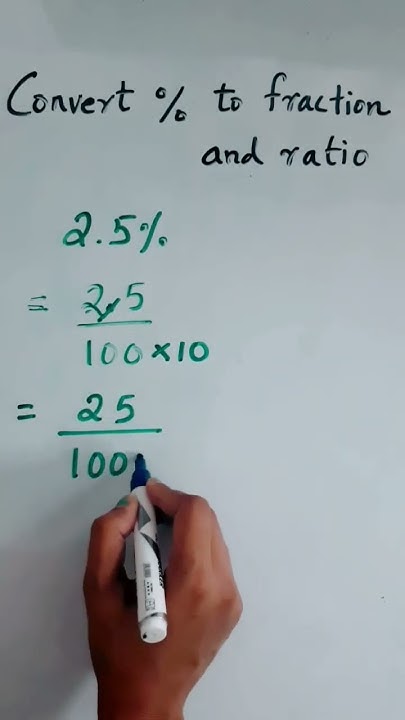 Convert % to fraction
and ratio
2.5%
= 2.5
100×10
= 25
100